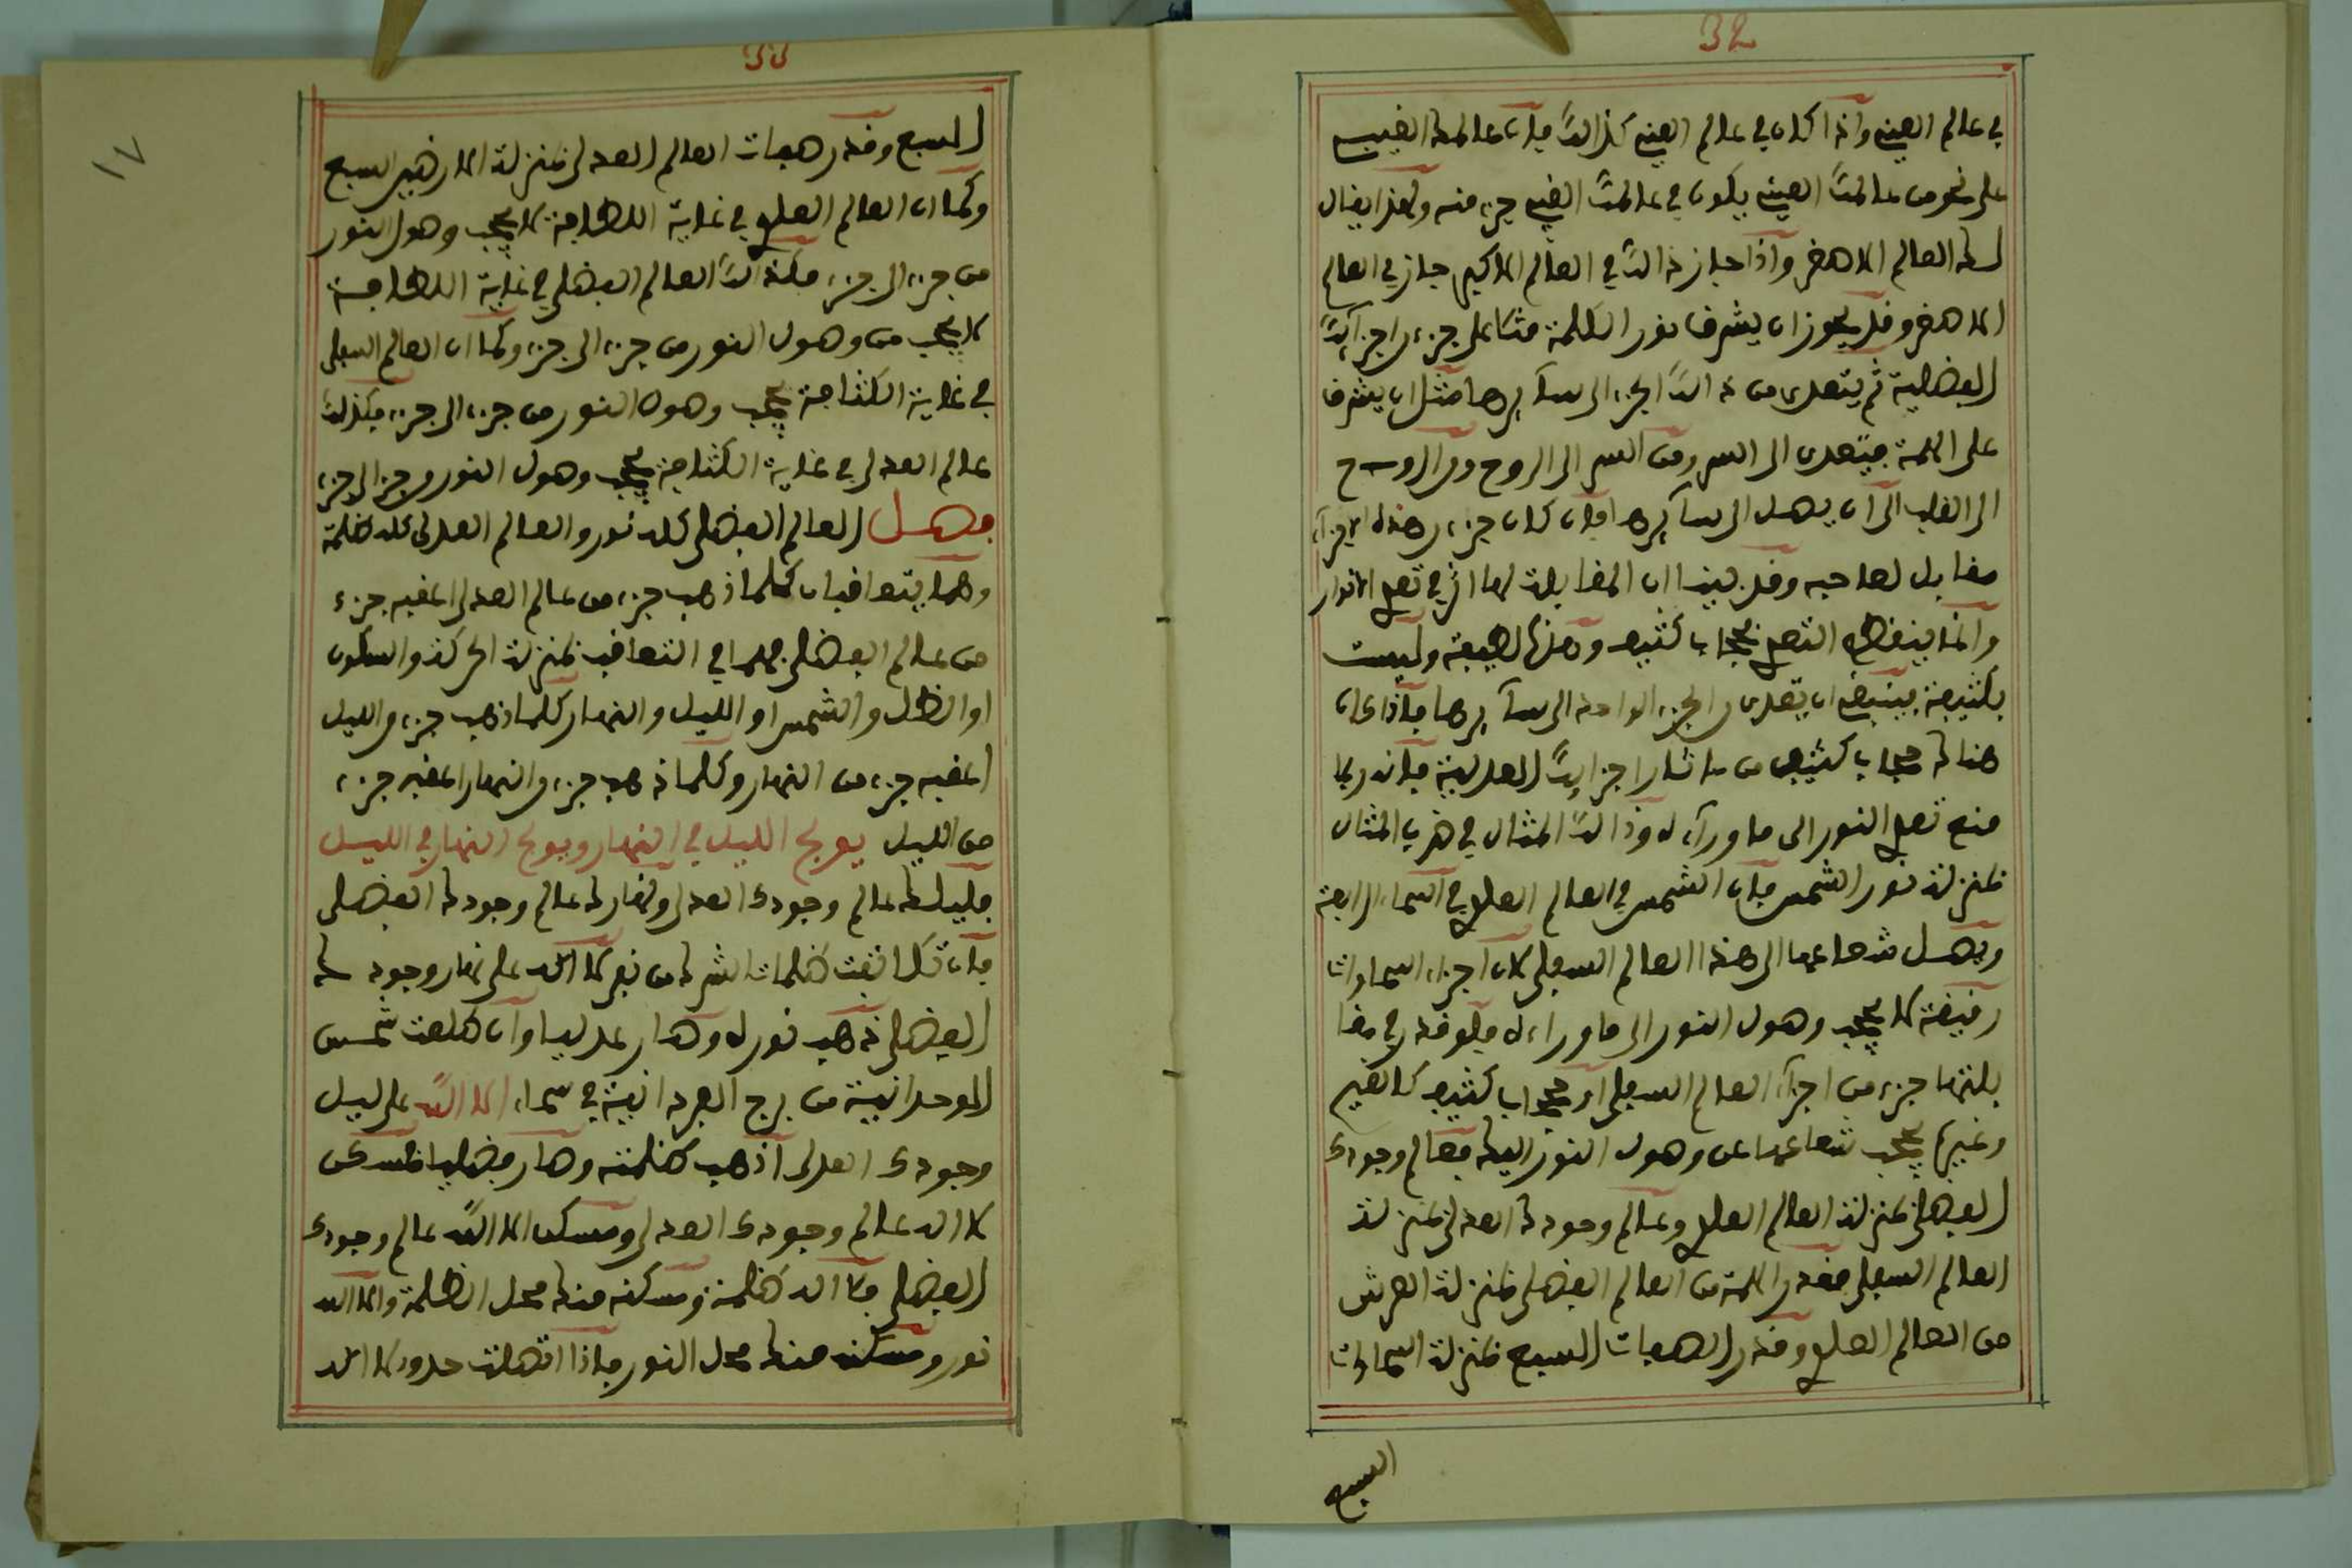 32
في عالم العين واذا كان في عالم العين كذالك فان عالمك الغيب
على نحو من عالمك العين يكون في عالمك الغيب جزء منه ولهذا يقال
لك العالم الاصغر واذا جاز ذالك في العالم الاكبر جاز في العالم
الاصغر وقد يجوز ان يشرف نور الكلمة مثلا على جزء من اجزايك
الفضلية ثم يتعدى من ذالك الجزء الى سآيرها مثل ان يشرف
على الهمة فيتعدى الى السر ومن السر الى الروح ومن الروح
الى القلب الى ان يصل الى سآيرها فان كان جزء من هذه الاجزآء
مقابل لصاحبه وقد بينا ان المقابلة لها اثر في تعدي الانوار
وانما ينقطع التعدي بحجاب كثيف وهذه لطيفة وليست
بكثيفة فينبغي ان يتعدى من الجزء الواحد الى سآيرها فاذا كان
هناك حجاب كثيف من ساتر اجزايك العدلية فانه ربما
منع تعدي النور الى ما ورآءه وذالك المثال في ضرب المثال
بمنزلة نور الشمس فان الشمس في العالم العلوي في السماء الرابعة
ويصل شعاعها الى هذا العالم السفلي لان اجزاء السماوات
رقيقة لا يحجب وصول النور الى ما وراءه فلو قدر في مقا
بلتها جزء من اجزآء العالم السفلي او حجاب كثيف كالغيم
وغيرها يحجب شعاعها عن وصول النور اليك فعالم وجودك
الفضلي بمنزلة العالم العلوي وعالم وجودك العدلي بمنزلة
العالم السفلي فقدر الهمة من العالم الفضلي بمنزلة العرش
من العالم العلوي وقدر الصفات السبع بمنزلة السماوات
السبع
33
١٧
السبع وقدر صفات العالم العدلي بمنزلة الارضين السبع
وكما ان العالم العلوي في غاية اللطافة لا يحجب وصول النور
من جزء الى جزء فكذالك العالم الفضلي في غاية اللطافة
لا يحجب من وصول النور من جزء الى جزء وكما ان العالم السفلي
في غاية الكثافة يحجب وصول النور من جزء الى جزء فكذلك
عالم العدلي في غاية الكثافة يحجب وصول النور من جزء الى جزء
فصل العالم الفضلي كله نور والعالم العدلي كله ظلمة
وهما يتعاقبان كلما ذهب جزء من عالم العدلي اعقبه جزء
من عالم الفضلي فهما في التعاقب بمنزلة الحركة والسكون
او الظل والشمس او الليل والنهار كلما ذهب جزء من الليل
اعقبه جزء من النهار وكلما ذهب جزء من النهار اعقبه جزء
من الليل يولج الليل في النهار ويولج النهار في الليل
فليلك عالم وجودك العدلي ونهارك عالم وجودك الفضلي
فان تكاثفت ظلمات الشرك من نفي لا اله على نهار وجودك
الفضلي ذهب نوره وصار عدليا وان طلعت شمس
الوحدانية من برج الفردانية في سماء الا الله على ليل
وجودك العدلي اذهب ظلمته وصار فضليا فمسكن
لا اله عالم وجودك العدلي ومسكن الا الله عالم وجودك
الفضلي فلا اله ظلمة ومسكنه منك محل الظلمة والا الله
نور ومسكنه منك محل النور فاذا اتصلت حدود لا اله